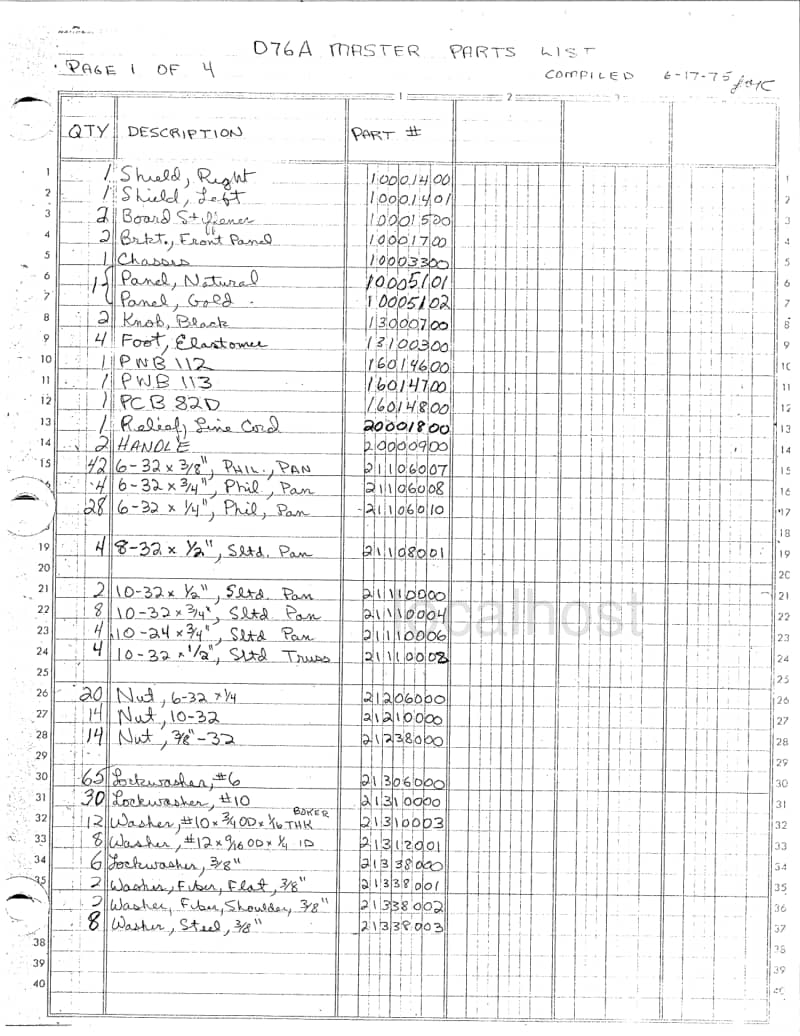 D76A MASTER PARTS LIST
PAGE 1 OF 4
COMPILED 6-17-75
1 2 3
QTY DESCRIPTION PART #
1 1 Shield, Right 10001400 1
2 1 Shield, Left 10001401 2
3 2 Board Stiffener 10001500 3
4 2 Brkt., Front Panel 10001700 4
5 1 Chassis 10003300 5
6 1{ Panel, Natural 10005101 6
7 Panel, Gold 10005102 7
8 2 Knob, Black 13000700 8
9 4 Foot, Elastomer 13100300 9
10 1 PWB 112 16014600 10
11 1 PWB 113 16014700 11
12 1 PCB 82D 16014800 12
13 1 Relief, Line Cord 20001800 13
14 2 HANDLE 20000900 14
15 42 6-32 x 3/8", PHIL., PAN 21106007 15
4 6-32 x 3/4", Phil., Pan 21106008 16
28 6-32 x 1/4", Phil, Pan 21106010 17
18
19 4 8-32 x 1/2", Sltd. Pan 21108001 19
20 20
21 2 10-32 x 1/2", Sltd. Pan 21110000 21
22 8 10-32 x 3/4", Sltd Pan 21110004 22
23 4 10-24 x 3/4", Sltd Pan 21110006 23
24 4 10-32 x 1/2", Sltd Truss 21110008 24
localhost
25 25
26 20 Nut, 6-32 x 1/4 21206000 26
27 14 Nut, 10-32 21210000 27
28 14 Nut, 3/8"-32 21238000 28
29 29
30 65 Lockwasher, #6 21306000 30
31 30 Lockwasher, #10 21310000 31
BOKER
32 12 Washer, #10 x 3/4 OD x 1/16 THK 21310003 32
33 8 Washer, #12 x 9/16 OD x 1/4 ID 21312001 33
34 6 Lockwasher, 3/8" 21338000 34
35 2 Washer, Fiber, Flat, 3/8" 21338001 35
2 Washer, Fiber, Shoulder, 3/8" 21338002 36
8 Washer, Steel, 3/8" 21338003 37
38 38
39 39
40 40